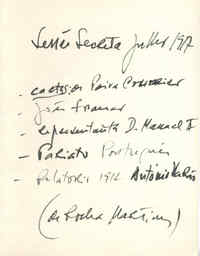 Sessão Secreta Julho 1917
- cartas de Paiva Couceiro
- João Franco
- representante D. Manuel II
- Pariato Português
- Relatório 1912 António
(de Rocha Martins)